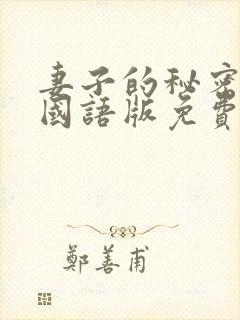 妻子的秘密
國語版免費
鄭善甫